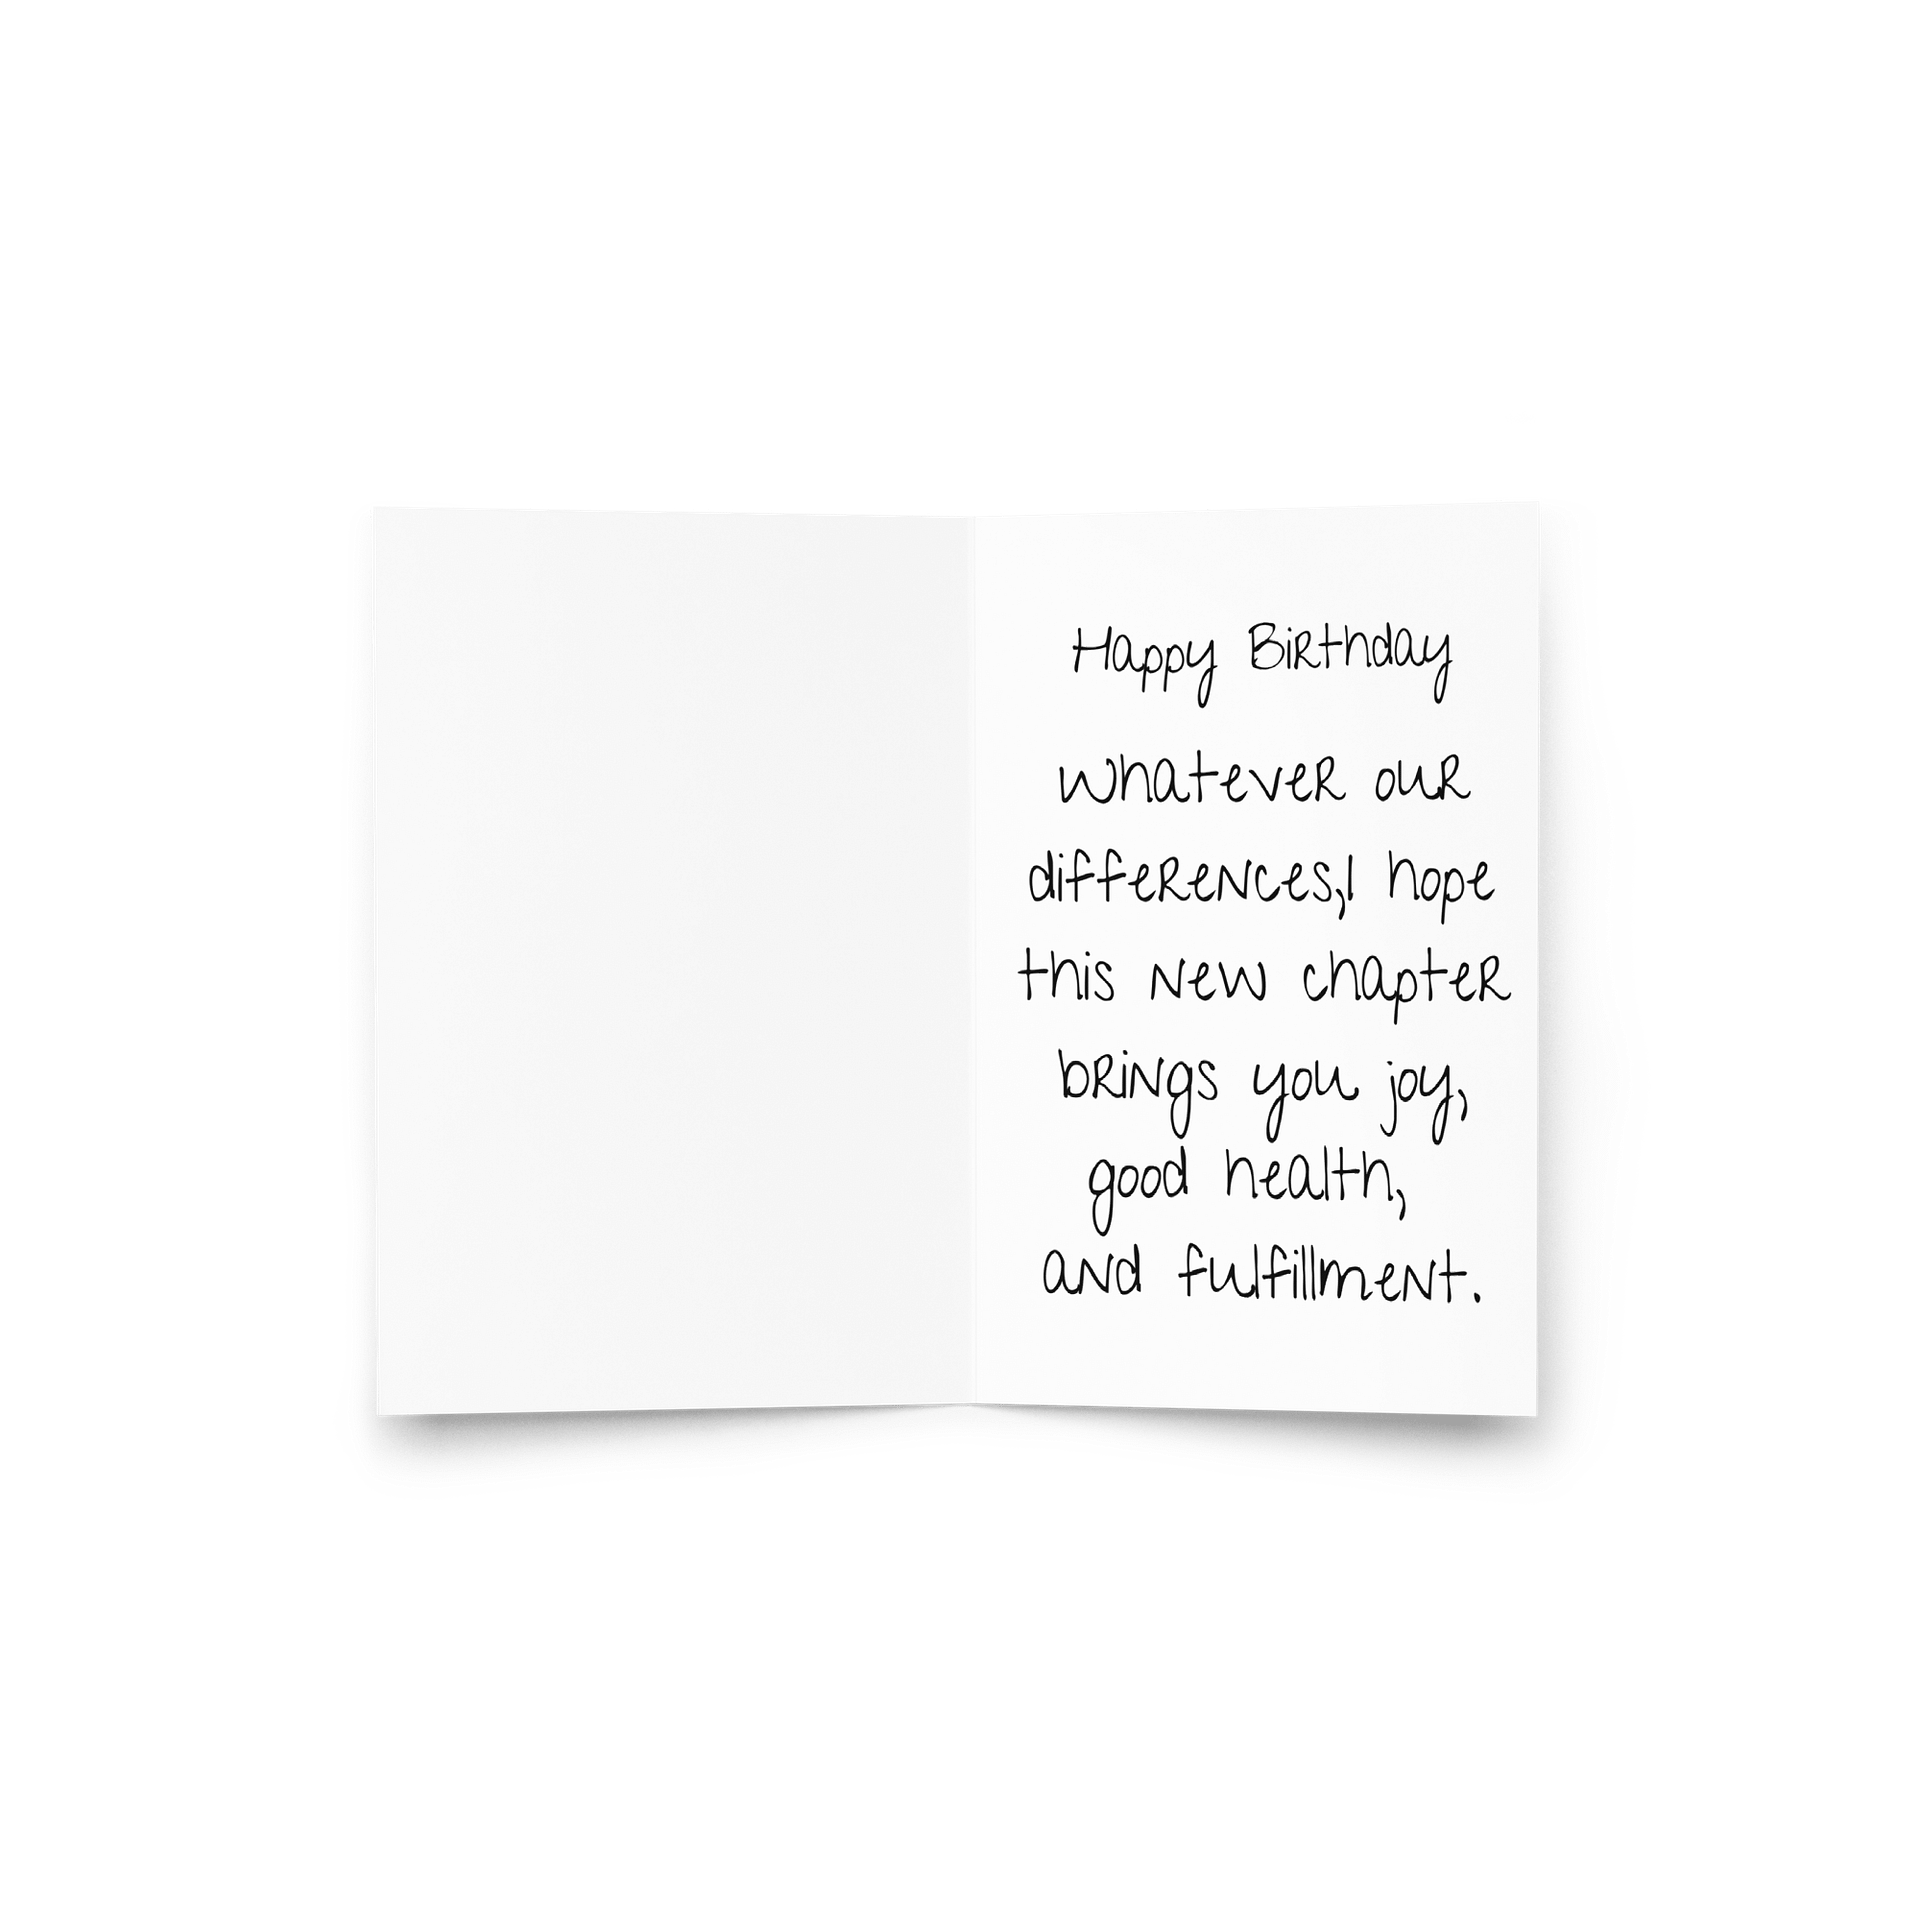 Happy Birthday
whatever our
differences,I hope
this new chapter
brings you joy,
good health,
and fulfillment.